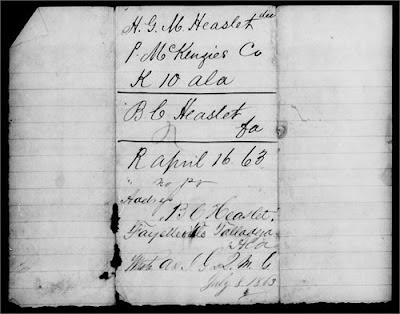 H. G. M. Heaslet dec
P. McKenzies Co
K 10 ala
B C Heaslet
fa
R april 16 63
no po
B C Heaslet.
Fayetteville Talladga
Ala
July 8 1863